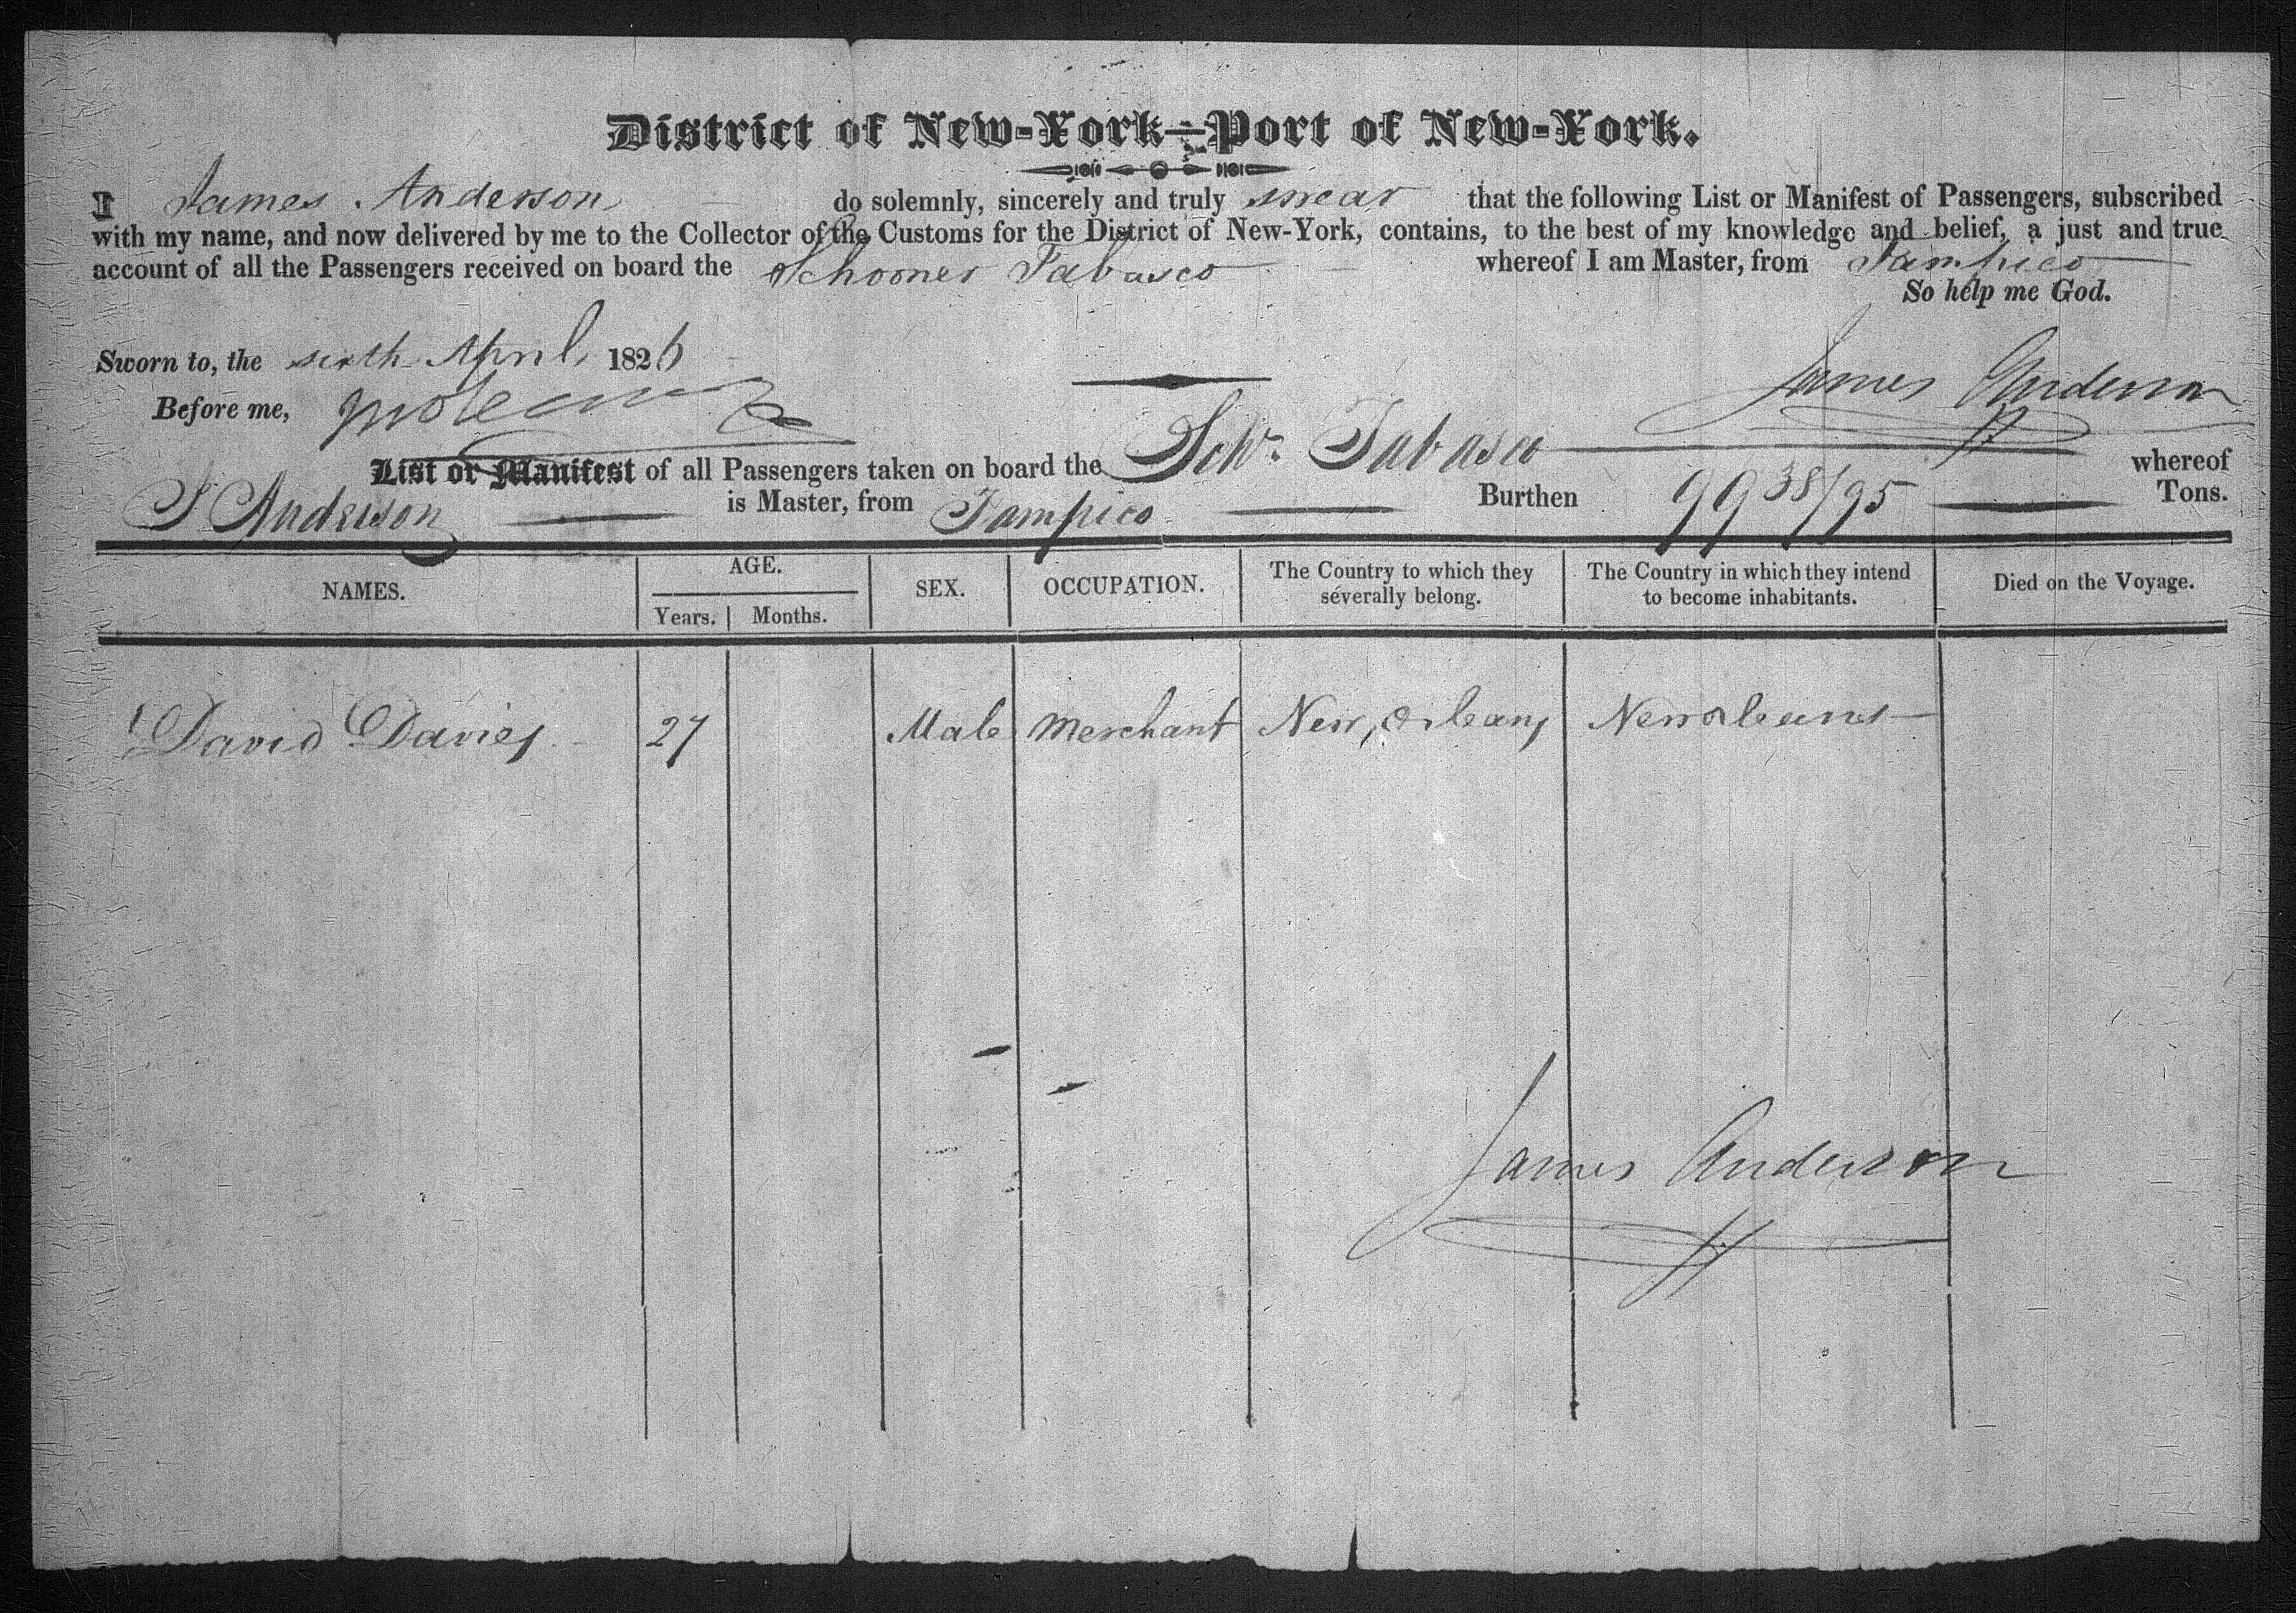 District of New-York—Port of New-York.
I James Anderson do solemnly, sincerely and truly swear that the following List or Manifest of Passengers, subscribed
with my name, and now delivered by me to the Collector of the Customs for the District of New-York, contains, to the best of my knowledge and belief, a just and true
account of all the Passengers received on board the Schooner Tabasco whereof I am Master, from Tampico
So help me God.
Sworn to, the sixth April 1826
James Anderson
Before me,
List or Manifest of all Passengers taken on board the Schr. Tabasco whereof
J Anderson is Master, from Tampico Burthen 99 38/95 Tons.
NAMES. AGE. Years. Months. SEX. OCCUPATION. The Country to which they severally belong. The Country in which they intend to become inhabitants. Died on the Voyage.
David Davies 27 Male Merchant New Orleans New Orleans
James Anderson